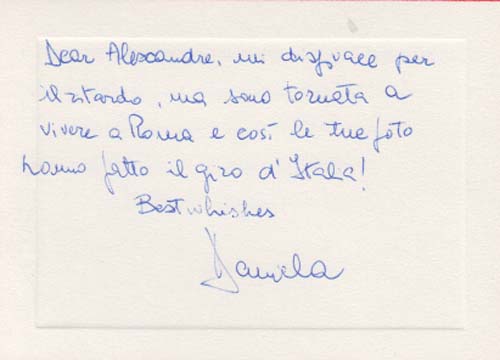 Dear Alexandre, mi dispiace per
il ritardo, ma sono tornata a
vivere a Roma e così le tue foto
hanno fatto il giro d'Italia!
Best whishes
Daniela